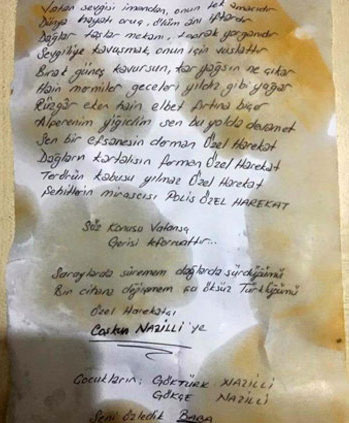 Vatan sevgisi imandan, onun tek amacıdır
Dünya hayatı oruç, ölüm anı iftardır
Dağlar taşlar mekanı, toprak yorgandır
Sevgiliye kavuşmak, onun için vuslattır
Bırak güneş kavursun, kar yağsın ne çıkar
Hain mermiler geceleri yıldız gibi yağar
Rüzgar eken hain elbet fırtına biçer
Alperenim yiğidim sen bu yolda devam et
Sen bir efsanesin derman Özel Harekat
Dağların kartalısın ferman Özel Harekat
Terörün kabusu yılmaz Özel Harekat
Şehitlerin mirasçısı POLİS ÖZEL HAREKAT
Söz Konusu Vatansa
Gerisi teferruattır...
Saraylarda süremem dağlarda sürdüğümü
Bin cihana değişmem şu öksüz Türklüğümü
Özel Harekatçı
Coşkun NAZİLLİ'ye
Çocukların: GÖKTÜRK NAZİLLİ
GÖKÇE NAZİLLİ
Seni Özledik BABA